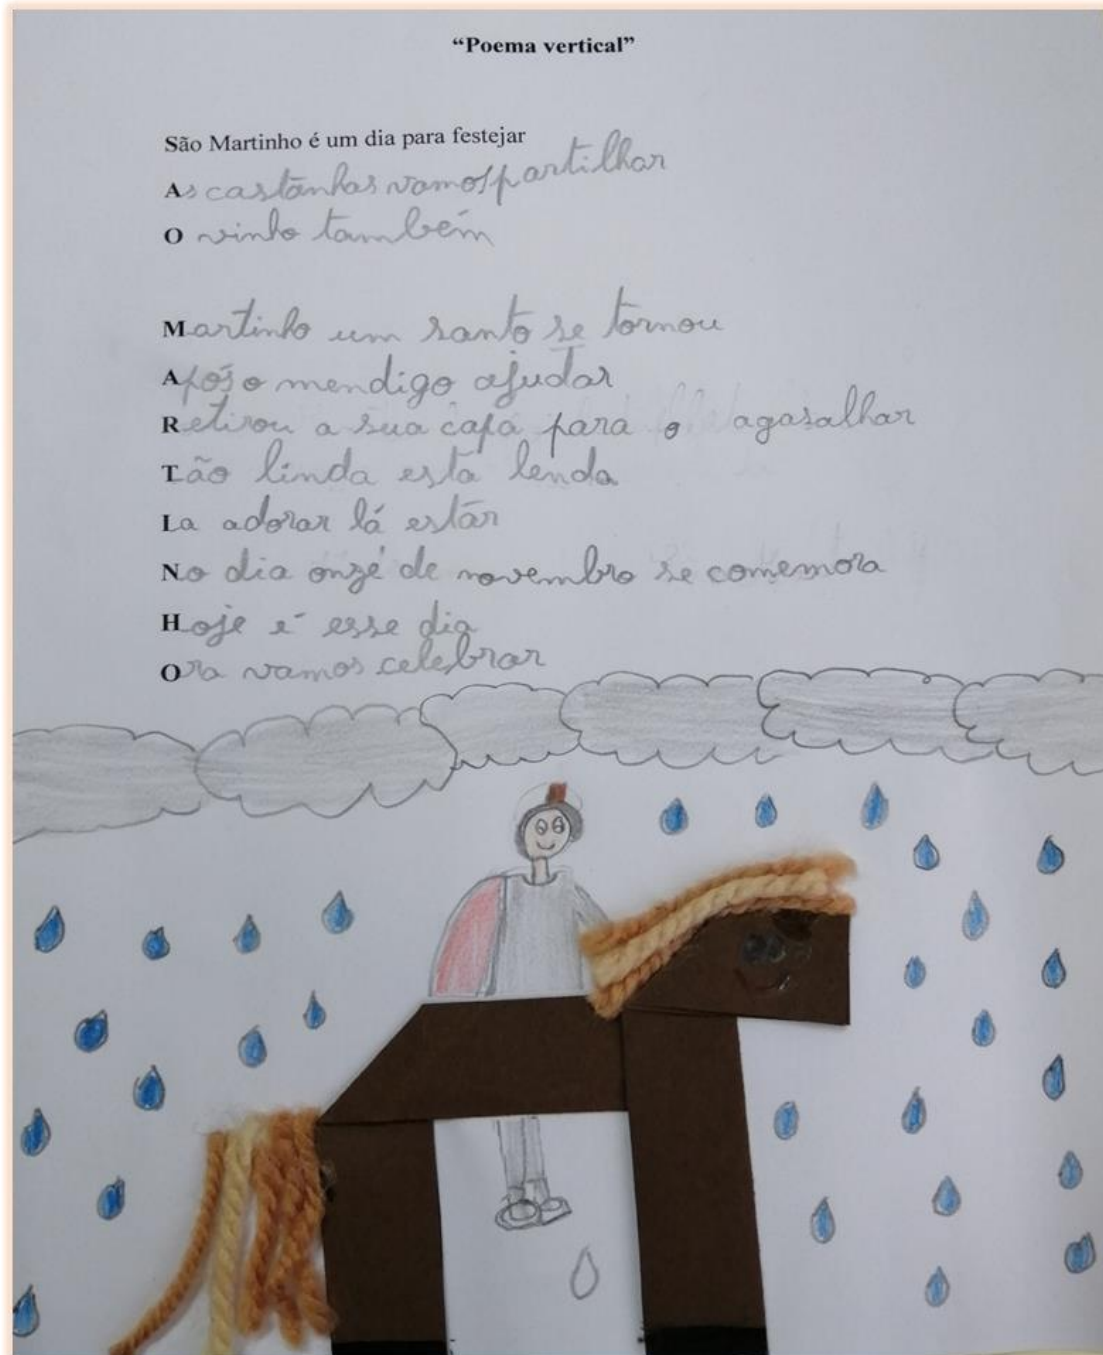 “Poema vertical”
São Martinho é um dia para festejar
As castanhas vamos partilhar
O vinho também
Martinho um santo se tornou
Após o mendigo ajudar
Retirou a sua capa para o agasalhar
Tão linda esta lenda
Ia adorar lá estar
No dia onze de novembro se comemora
Hoje é esse dia
Ora vamos celebrar